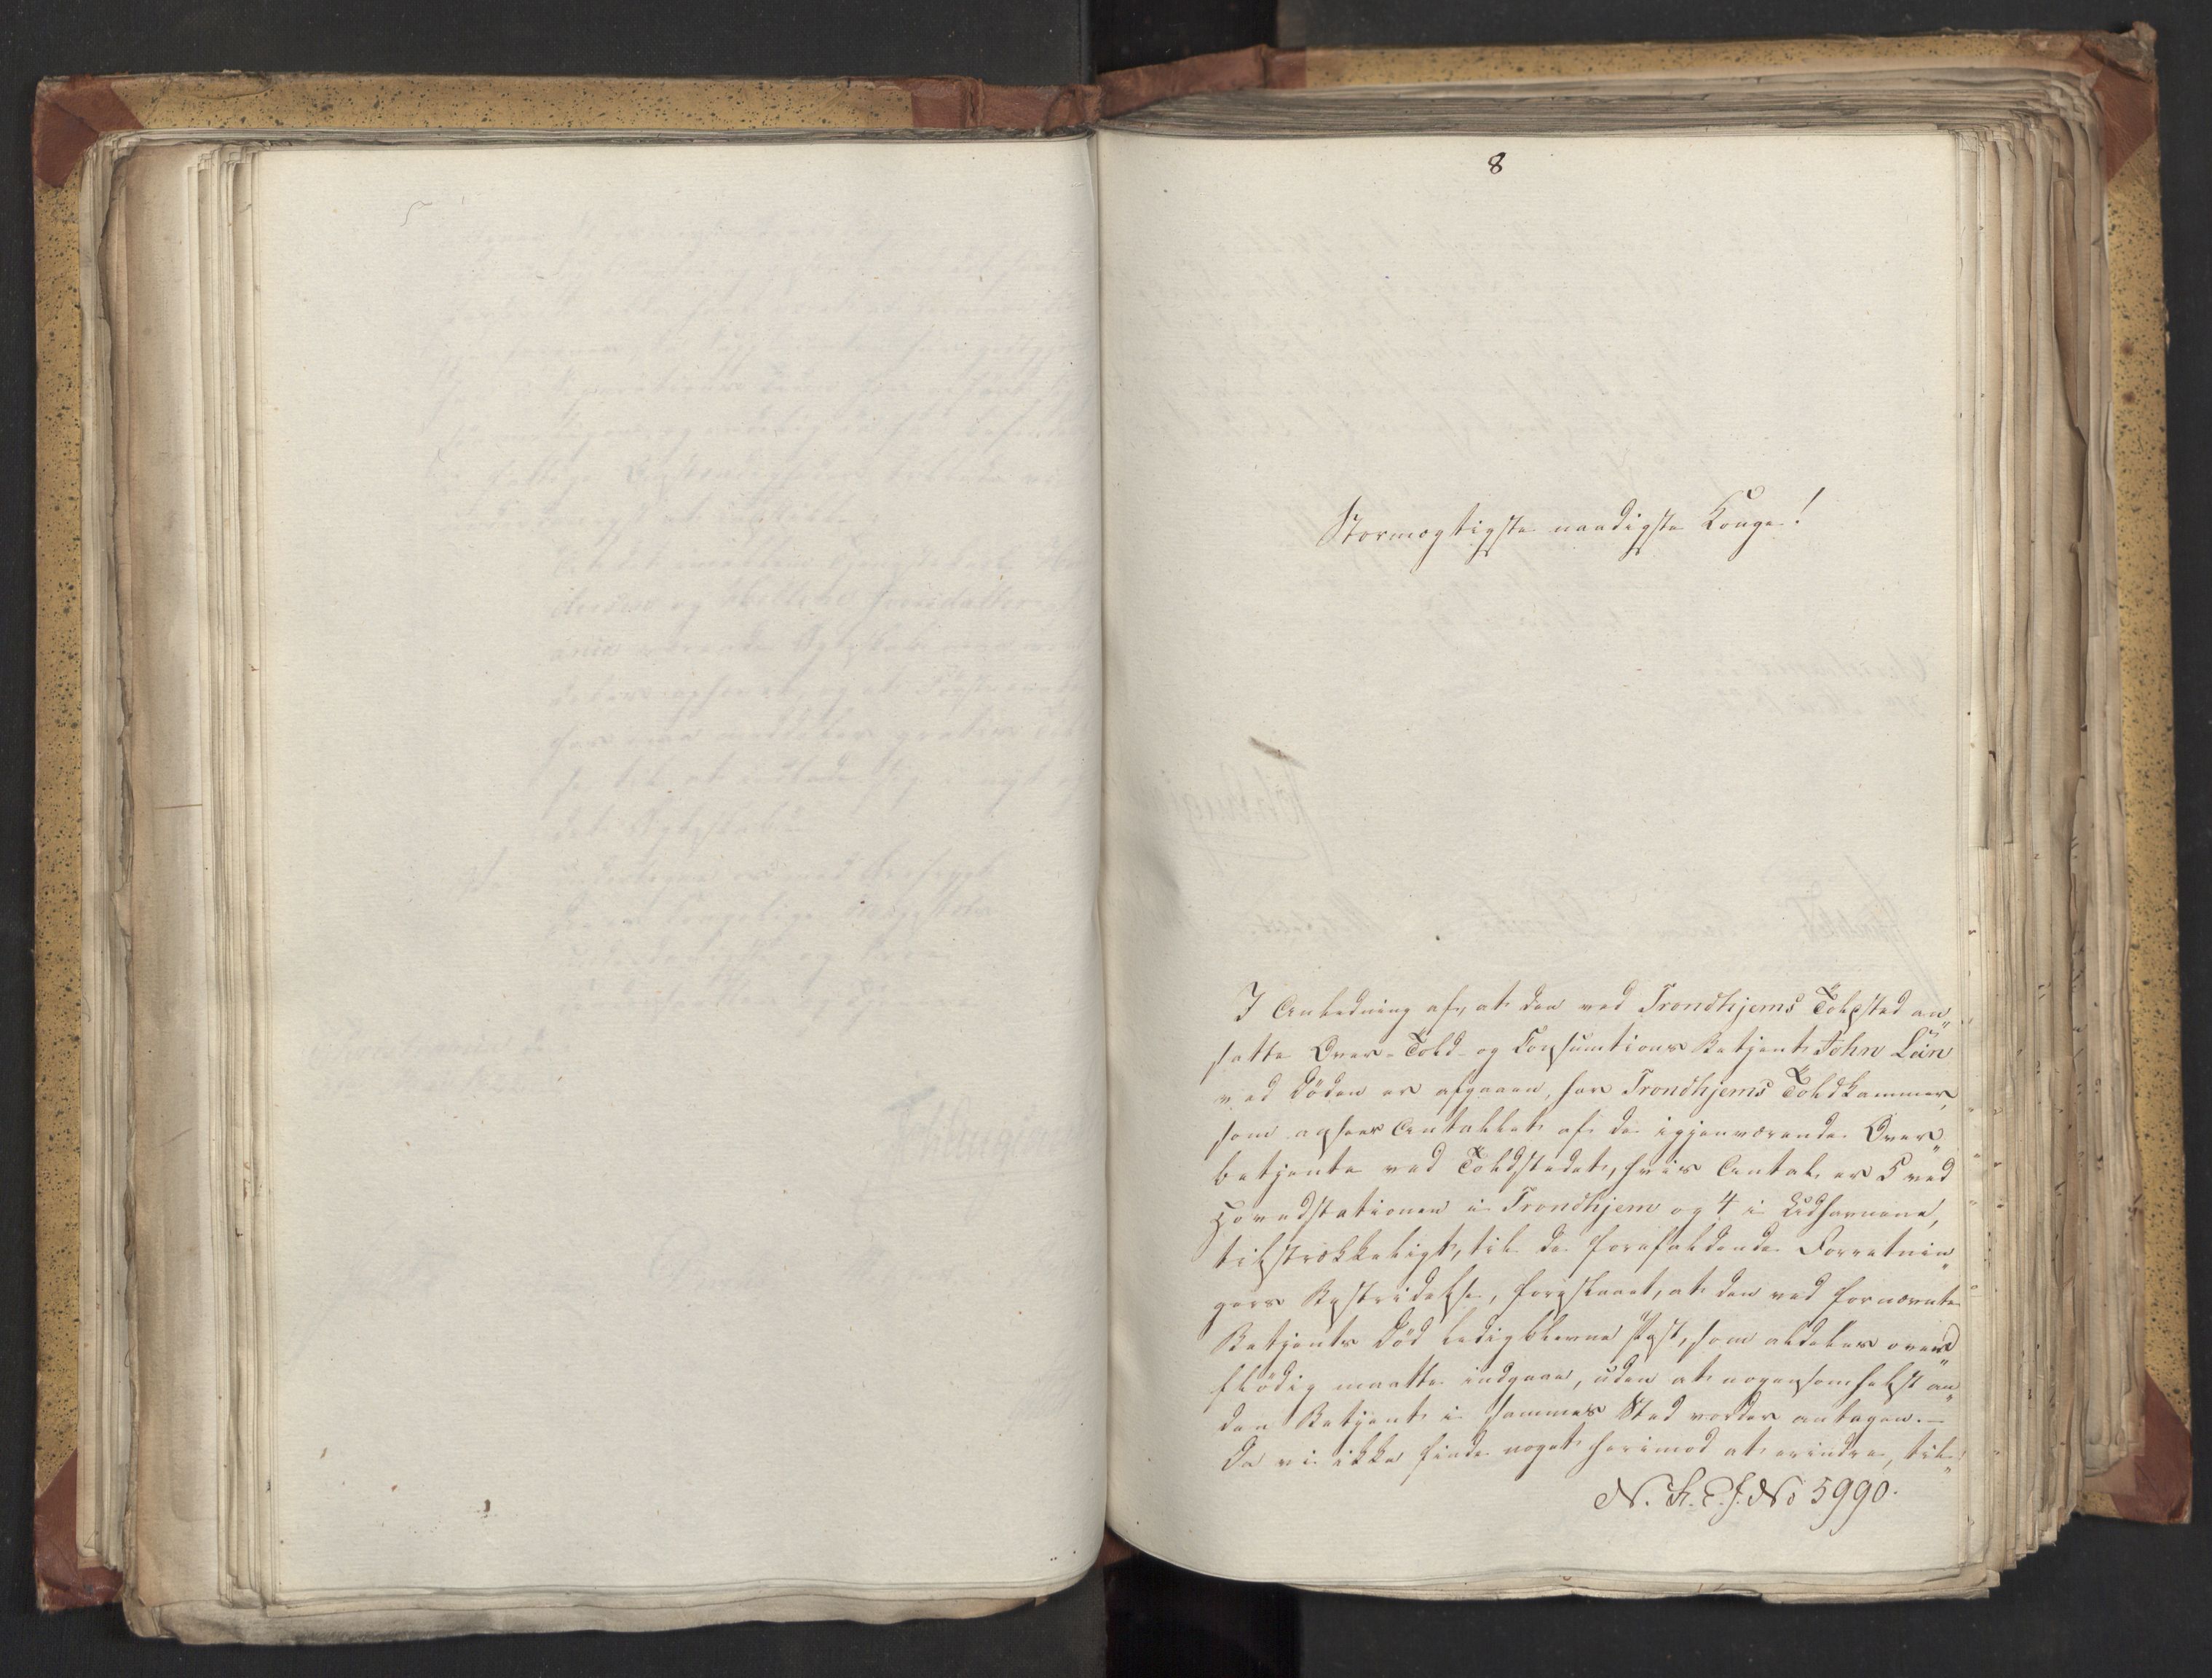 8
Stormægtigste naadigste Konge!
I Anledning af, at den ved Trondhjems Toldsted an„
satte Over-Told- og Consumtions Betjent John Lün
ved Döden er afgaaen, har Trondhjems Toldkammer,
som anseer Antallet af de igjenværende Over„
betjente ved Toldstedet, hvis Antal er 5 ved
Hovedstationen i Trondhjem og 4 i Udhavnene,
tilstrækkeligt, til de forefaldende Forretnin„
gers Bestridelse, foreslaaet, at den ved fornævnte
Betjents Död ledigblevne Post, som aldeles over„
flödig maatte indgaae, uden at nogensomhelst an„
den Betjent i sammes Sted vorder antagen. –
Da vi ikke finde noget herimod at erindre, til„
N. H. T. J. No 5990.